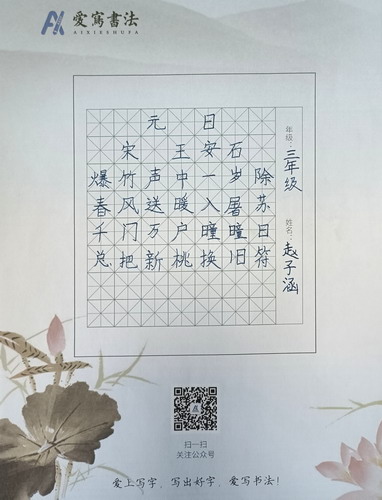 愛寫書法
AIXIESHUFA
元日
宋 王安石
爆竹声中一岁除
春风送暖入屠苏
千门万户曈曈日
总把新桃换旧符
年级：三年级
姓名：赵子涵
扫一扫
关注公众号
爱上写字，写出好字，爱写书法！